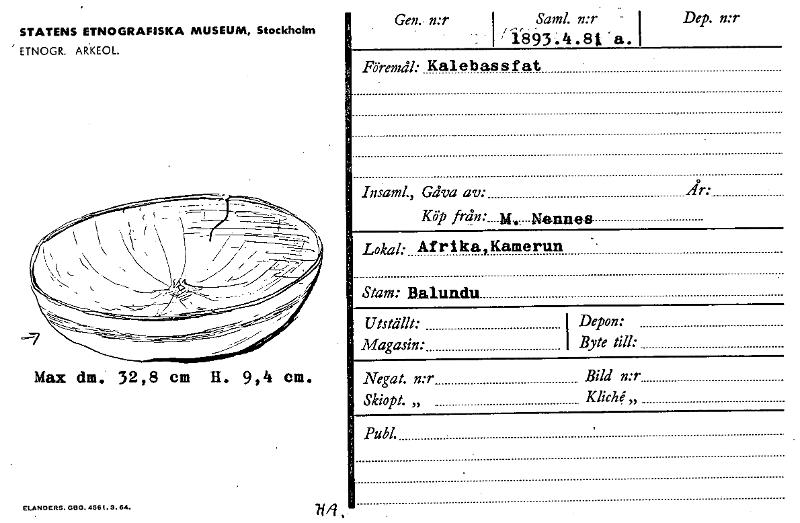 STATENS ETNOGRAFISKA MUSEUM, Stockholm
ETNOGR. ARKEOL.
Max dm. 32,8 cm H. 9,4 cm.
ELANDERS. GBG. 4561. 3. 64.
HA.
Gen. n:r Saml. n:r Dep. n:r
1893.4.81 a.
Föremål: Kalebassfat
Insaml., Gåva av: År:
Köp från: M. Nennes
Lokal: Afrika,Kamerun
Stam: Balundu
Utställt: Depon:
Magasin: Byte till:
Negat. n:r Bild n:r
Skiopt. „ Kliché „
Publ.